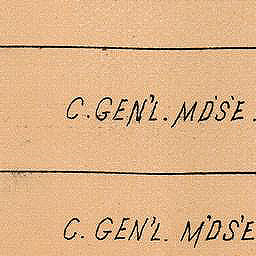 C. GEN'L. MD'S'E.
C. GEN'L. M'D'S'E